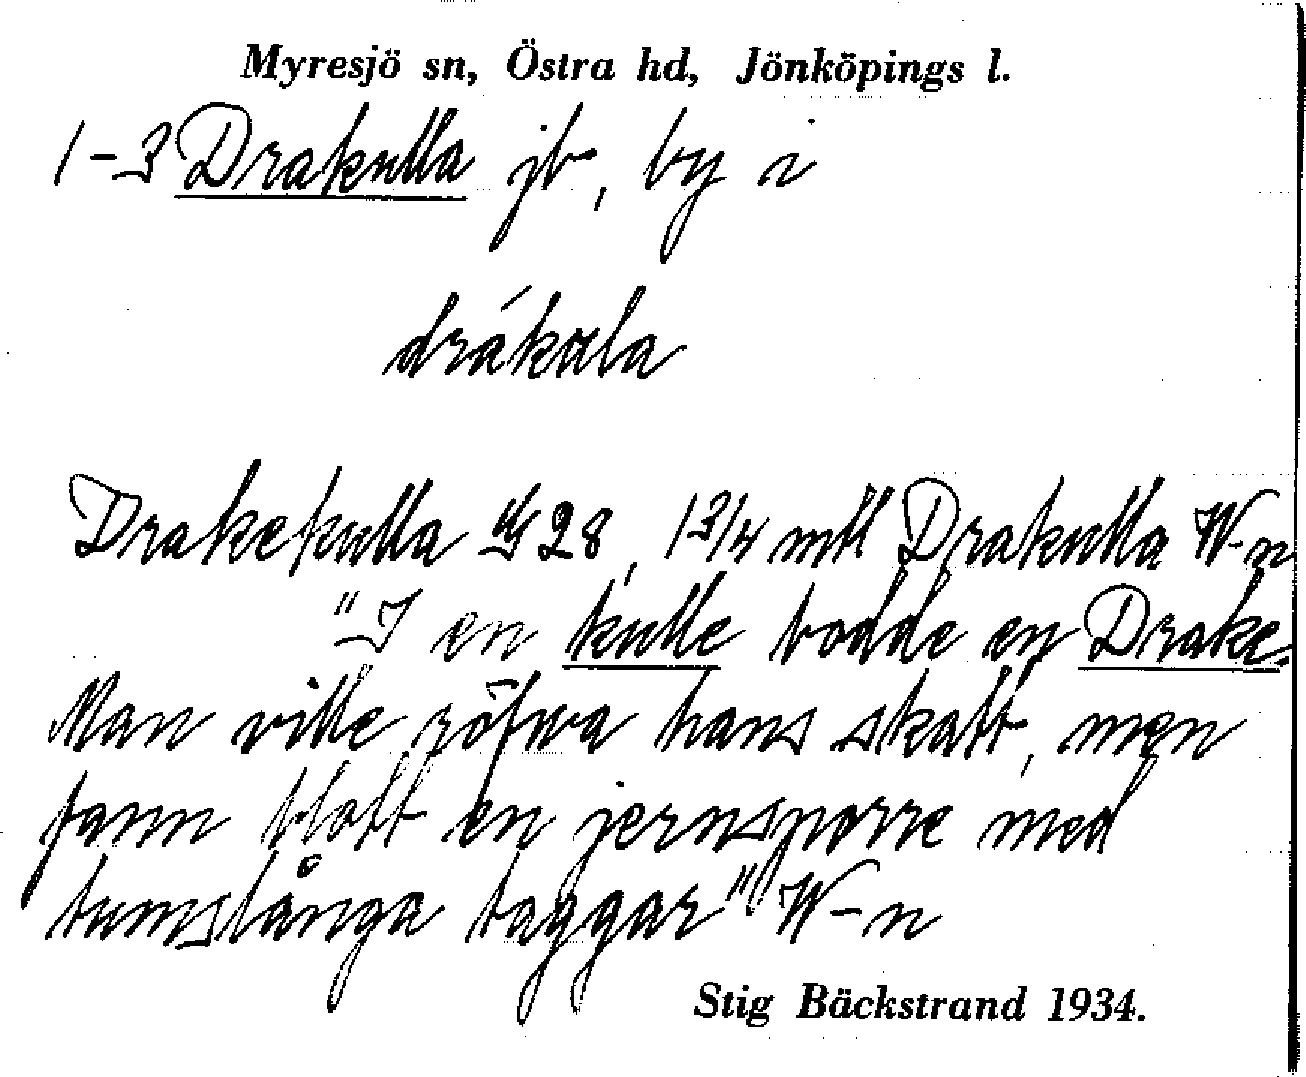 Myresjö sn, Östra hd, Jönköpings l.
1-3 Drakulla jb, by i
drákala
Drakekulla G 28, 1 3/4 mtl Drakulla W-n
"I en kulle bodde en Drake.
Man ville röfwa hans skatt, men
fann blott en jernsporre med
tumslånga taggar" W-n
Stig Bäckstrand 1934.